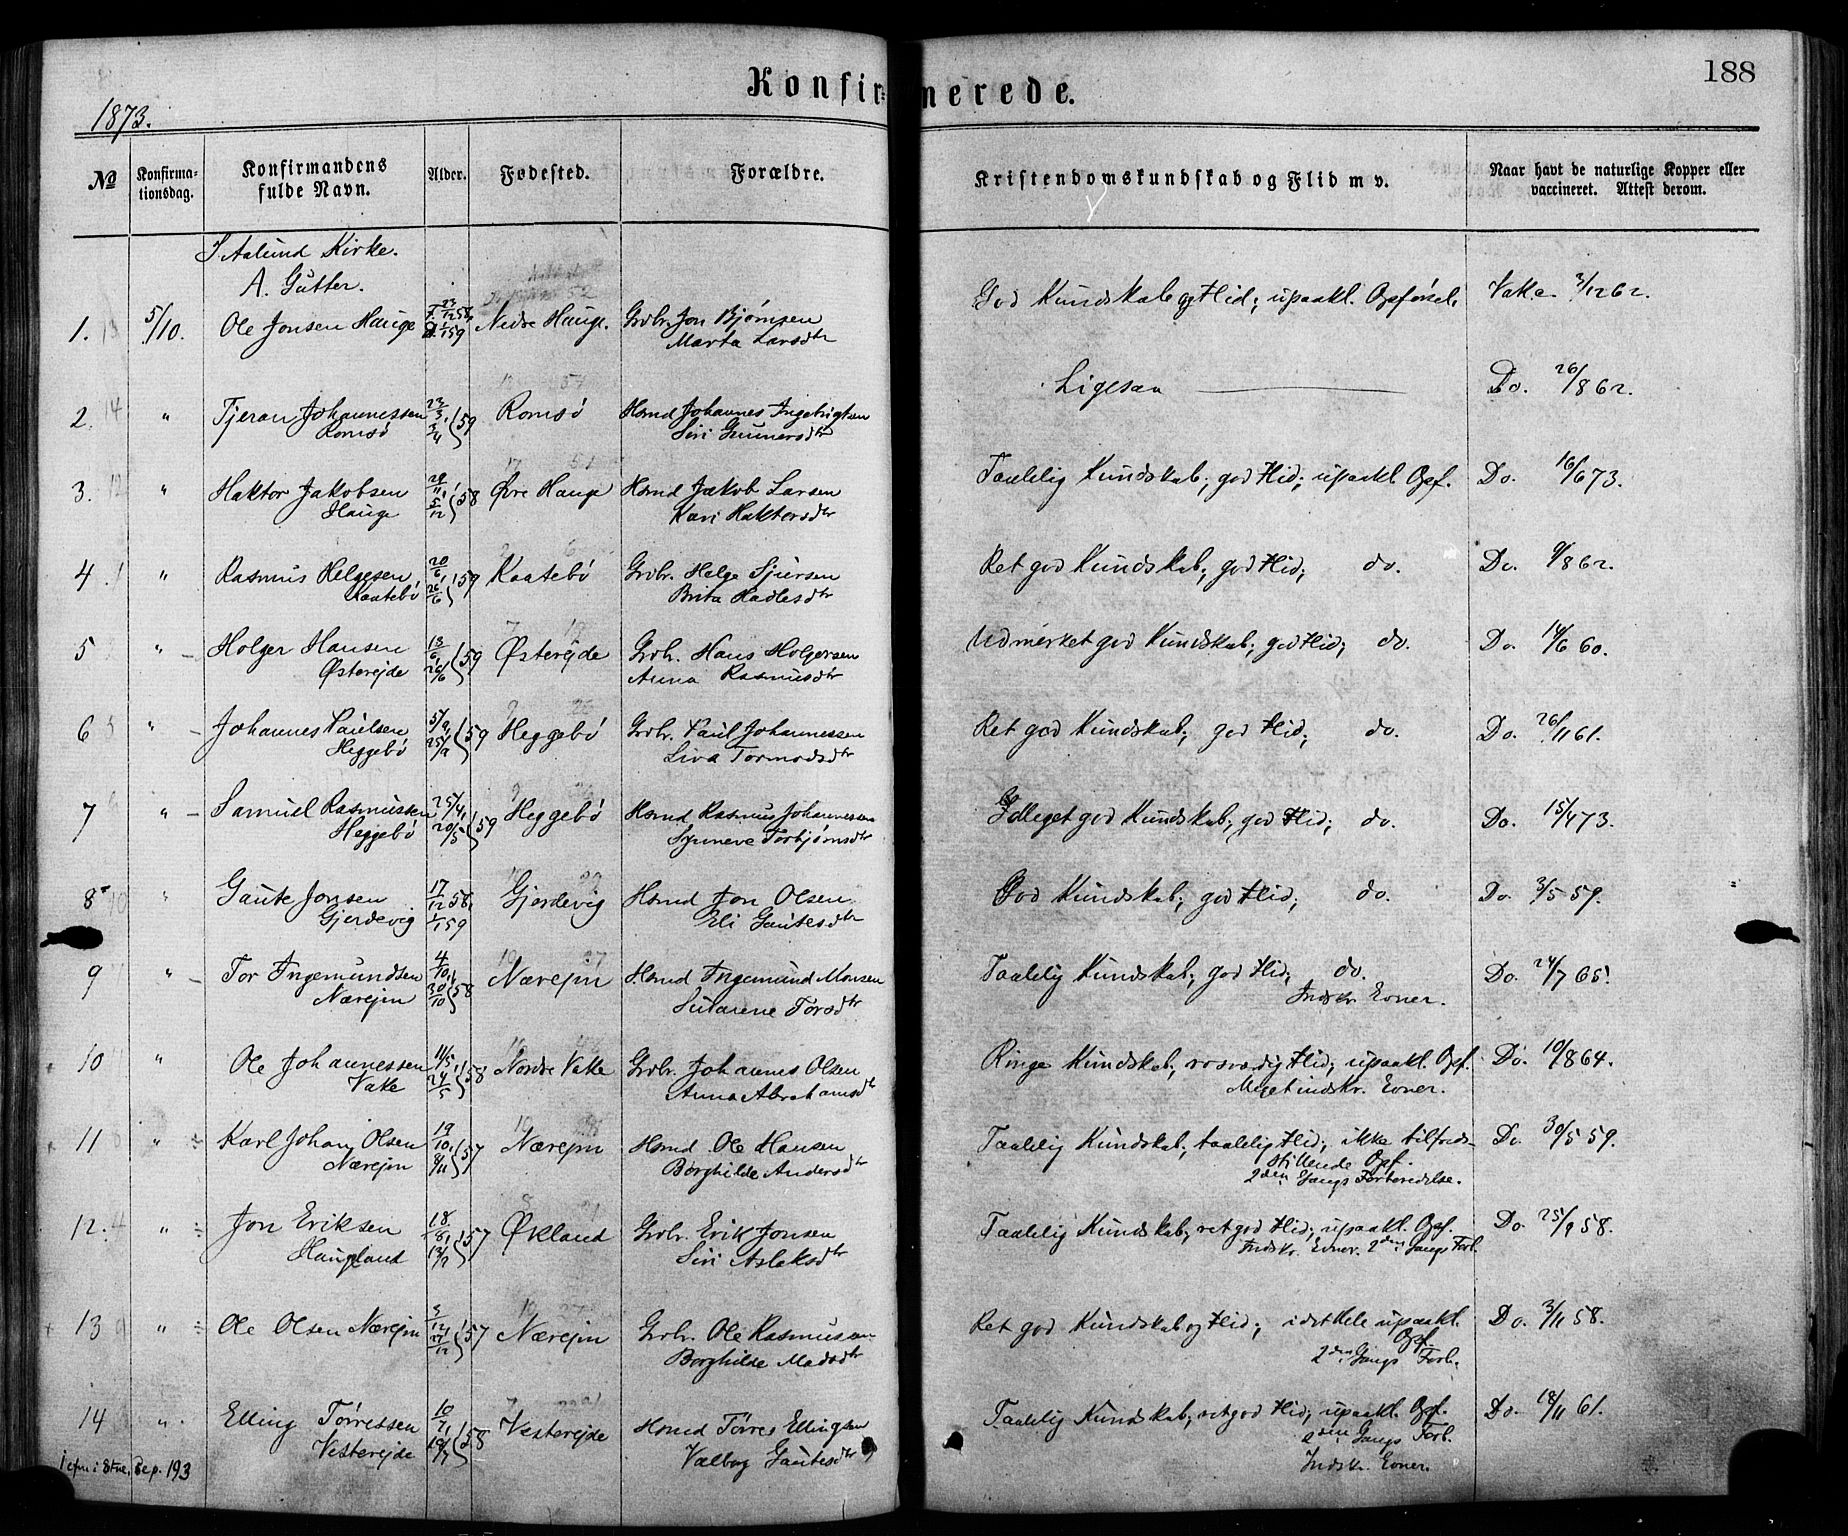 188
Konfirmerede.
1873.
No
Konfirma-
tionsdag.
Konfirmandens
fulde Navn.
Alder.
Fødested.
Forældre.
Kristendomskundskab og Flid m v.
Naar havt de naturlige Kopper eller
vaccineret. Attest derom.
I Aalund Kirke.
A. Gutter.
1. 5/10. Ole Jonsen Hauge F. 23/12 58, D. 1/1 59 Nedre Hauge. Grdbr. Jon Bjørnsen God Kundskab og Flid; upaakl. Opførsel. Vakc. 3/12 62.
Marta Larsdtr
2. " Tjeran Johannessen 23/3, 3/4 59 Romsø Hsmd Johannes Ingebrigtsen Ligesaa Do. 26/8 62.
Romsø Siri Gunnarsdtr
3. " Haktor Jakobsen 29/11, 5/12 58 Øvre Hauge Hsmd Jakob Larsen Taalelig Kundskab; god Flid; upaakl. Opf. Do. 16/6 73.
Hauge Kari Haktorsdtr
4 " Rasmus Helgesen 20/6, 26/6 59 Kaatebø Grbr. Helge Sjursen Ret god Kundskab; god Flid; do. Do. 9/8 62.
Kaatebø Brita Hadlesdtr
5 " Holger Hansen 13/6, 26/6 59 Østerejde Grbr. Hans Holgersen Udmerket god Kundskab; god Flid; do. Do. 14/6 60.
Østerejde Anna Rasmusdtr
6 " Johannes Paulsen 5/9, 25/9 59 Heggebø Grbr. Paul Johannessen Ret god Kundskab; god Flid; do. Do. 26/11 61.
Heggebø Siva Tormodsdtr
7 " Samuel Rasmussen 25/4, 20/5 59 Heggebø Hsmd Rasmus Johannessen Meget god Kundskab; god Flid; do. Do. 15/4 73.
Heggebø Synneve Torbjørnsdtr
8 " Gaute Jonsen 17/12 58, 1/1 59 Gjerdevig Hsmd Jon Olsen God Kundskab; god Flid; do. Do. 3/5 59.
Gjerdevig Eli Gautesdtr
9 " Tor Ingemundsen 4/10, 30/10 58 Nærejm Hsmd Ingemund Monsen Taalelig Kundskab; god Flid; do. Do. 24/7 65.
Nærejm Torsdtr Indskr. Evner.
10 " Ole Johannessen 11/5, 24/5 58 Nordre Vake Grbr. Johannes Olsen Ringe Kundskab; rosværdig Flid; upaakl. Opf. Do. 10/8 64.
Vake Anna Abrahamsdtr Meget indskr. Evner.
11 " Karl Johan Olsen 19/10, 8/11 57 Nærejm Hsmd Ole Hansen Taalelig Kundskab; taalelig Flid; ikke tilfreds- Do. 30/5 59.
Nærejm Borghilde Andersdtr stillende Opf.
2den Gangs Forberedelse.
12. " Jon Eriksen 18/8, 13/9 57 Økland Grbr. Erik Jonsen Taalelig Kundskab; ret god Flid; upaakl. Opf. Do. 25/9 58.
Haugland Siri Aslaksdtr Indskr. Evner. 2den Gangs Forb.
13 " Ole Olsen Nærejm 3/12, 27/12 57 Nærejm Grbr. Ole Rasmussen Ret god Kundskab og Flid; idet Hele upaakl. Do. 3/11 58.
Borghilde Madsdtr Opf.
2den Gangs Forb.
14 " Elling Tørressen 10/7, 19/7 58 Vesterejde Hsmd Tørres Ellingsen Taalelig Kundskab; ret god Flid; upaakl. Opf. Do. 18/11 61.
Vesterejde Valborg Gautesdtr 2den Gangs Forb.
193 Indskr. Evner.